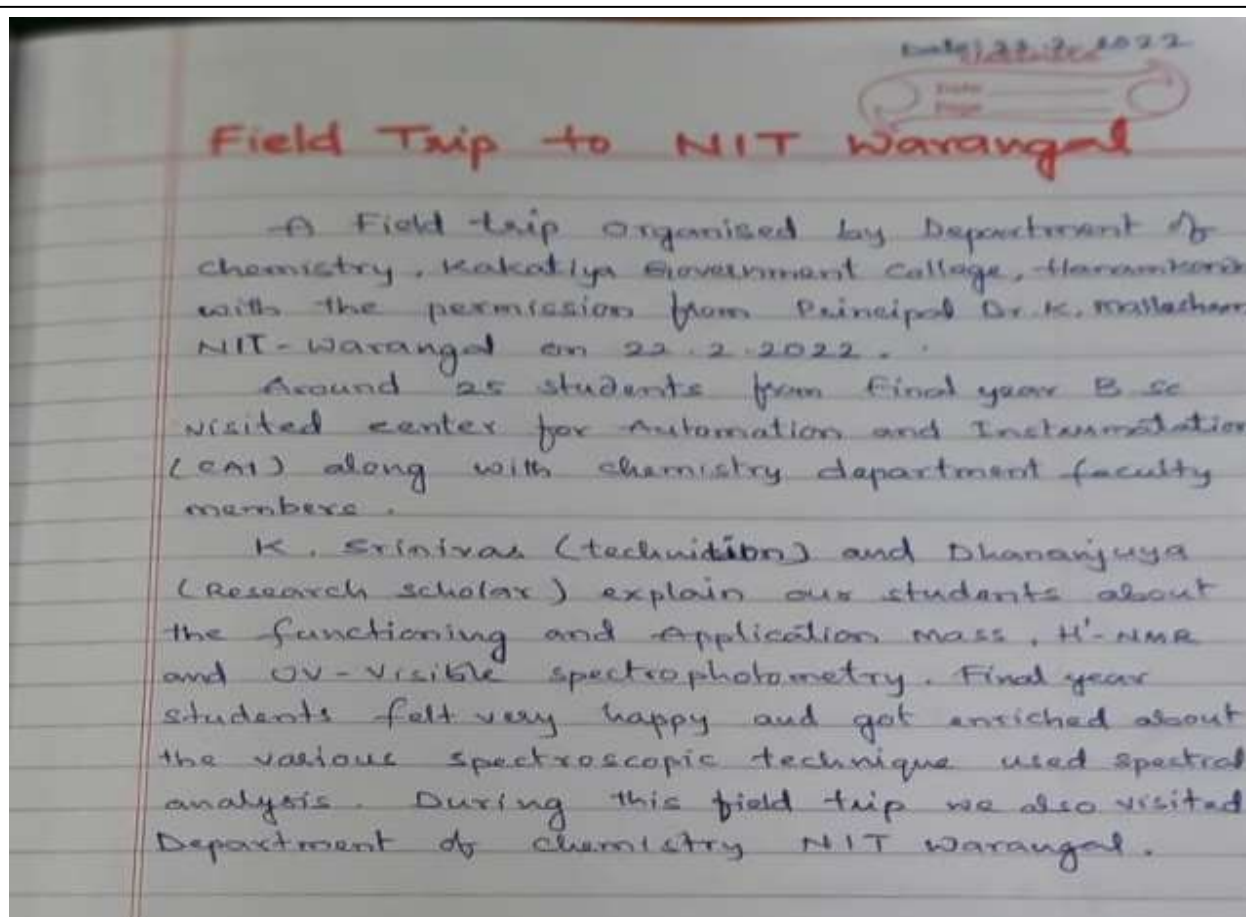 Date 22.2.2022
Date
Page
Field Trip to NIT Warangal
A Field trip organised by Department of
chemistry, Kakatiya Government College, Hanamkonda
with the permission from Principal Dr. K. Mallesham
NIT-Warangal on 22.2.2022.
Around 25 students from Final year B sc
visited center for Automation and Instrumentation
(CAI) along with chemistry department faculty
members.
K. Srinivas (technition) and Dhananjaya
(Research scholar) explain our students about
the functioning and Application Mass, H'-NMR
and UV-Visible spectrophotometry. Final year
students felt very happy and got enriched about
the various spectroscopic technique used spectral
analysis. During this field trip we also visited
Department of chemistry NIT Warangal.